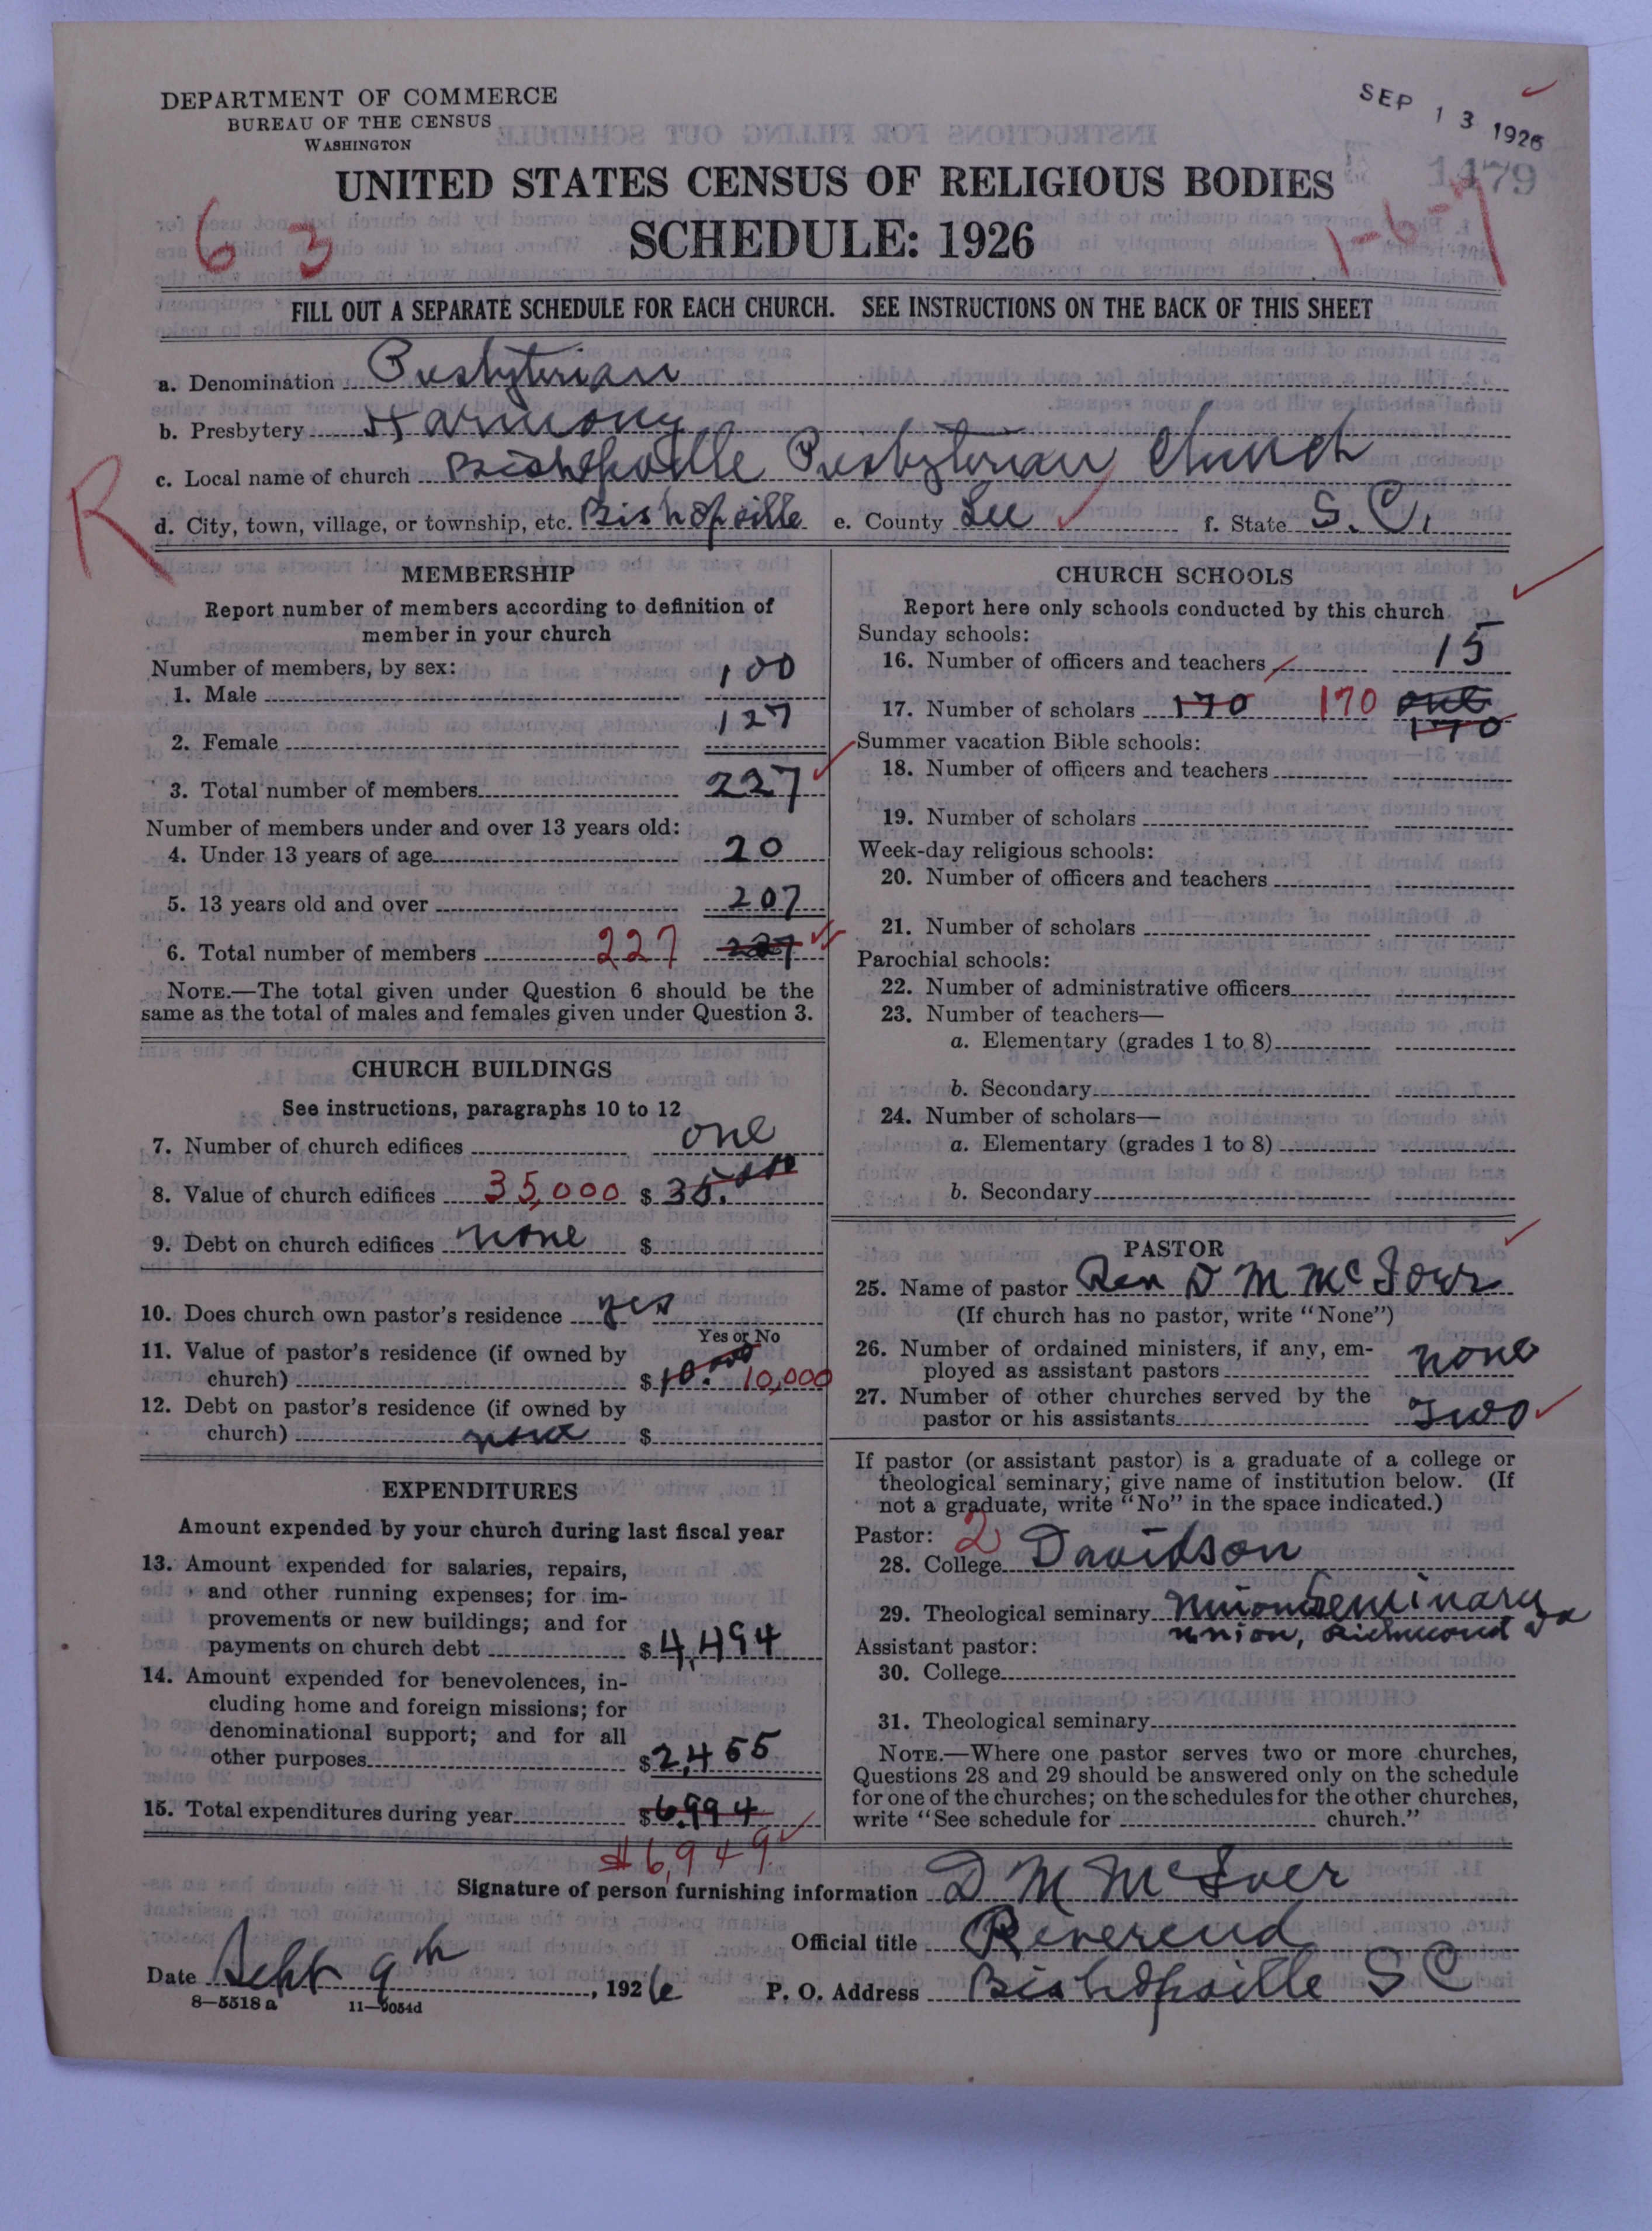 DEPARTMENT OF COMMERCE
BUREAU OF THE CENSUS
WASHINGTON
SEP 13 1926
1479
UNITED STATES CENSUS OF RELIGIOUS BODIES
SCHEDULE: 1926
6 3
1-6-7
FILL OUT A SEPARATE SCHEDULE FOR EACH CHURCH. SEE INSTRUCTIONS ON THE BACK OF THIS SHEET
a. Denomination Presbyterian
b. Presbytery Harmony
c. Local name of church Bishopville Presbyterian Church
R
d. City, town, village, or township, etc. Bishopville e. County Lee f. State S. C.
MEMBERSHIP
Report number of members according to definition of
member in your church
Number of members, by sex:
1. Male 100
2. Female 127
3. Total number of members 227
Number of members under and over 13 years old:
4. Under 13 years of age 20
5. 13 years old and over 207
6. Total number of members 227 227
NOTE.—The total given under Question 6 should be the
same as the total of males and females given under Question 3.
CHURCH BUILDINGS
See instructions, paragraphs 10 to 12
7. Number of church edifices one
8. Value of church edifices 35,000 $35.000
9. Debt on church edifices none $
10. Does church own pastor's residence yes
Yes or No
11. Value of pastor's residence (if owned by
church) $10.000 10,000
12. Debt on pastor's residence (if owned by
church) none $
EXPENDITURES
Amount expended by your church during last fiscal year
13. Amount expended for salaries, repairs,
and other running expenses; for im-
provements or new buildings; and for
payments on church debt $4,494
14. Amount expended for benevolences, in-
cluding home and foreign missions; for
denominational support; and for all
other purposes $2,455
15. Total expenditures during year $6994
$6,949
CHURCH SCHOOLS
Report here only schools conducted by this church
Sunday schools:
16. Number of officers and teachers 15
17. Number of scholars 170 170 one
170
Summer vacation Bible schools:
18. Number of officers and teachers
19. Number of scholars
Week-day religious schools:
20. Number of officers and teachers
21. Number of scholars
Parochial schools:
22. Number of administrative officers
23. Number of teachers—
a. Elementary (grades 1 to 8)
b. Secondary
24. Number of scholars—
a. Elementary (grades 1 to 8)
b. Secondary
PASTOR
25. Name of pastor Rev D M McIver
(If church has no pastor, write "None")
26. Number of ordained ministers, if any, em-
ployed as assistant pastors none
27. Number of other churches served by the
pastor or his assistants Two
If pastor (or assistant pastor) is a graduate of a college or
theological seminary; give name of institution below. (If
not a graduate, write "No" in the space indicated.)
Pastor: 2
28. College Davidson
29. Theological seminary Union Seminary
Union, Richmond Va
Assistant pastor:
30. College
31. Theological seminary
NOTE.—Where one pastor serves two or more churches,
Questions 28 and 29 should be answered only on the schedule
for one of the churches; on the schedules for the other churches,
write "See schedule for church."
Signature of person furnishing information D M McIver
Official title Reverend
Date Sept 9th, 1926 P. O. Address Bishopville S C
8—5518 a 11—9054d